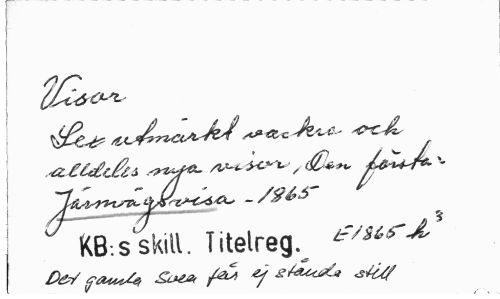 Visor
Sex utmärkt vackra och
alldeles nya visor, Den första:
Järnvägsvisa - 1865
KB:s skill. Titelreg. E1865 h³
Det gamla Svea får ej stånda still